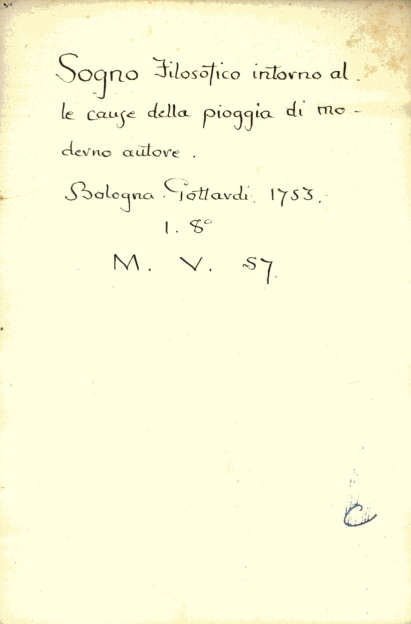 Sogno Filosofico intorno al
le cause della pioggia di mo-
derno autore.
Bologna. Gottardi. 1753.
1. 8°
M. V. 57.
C